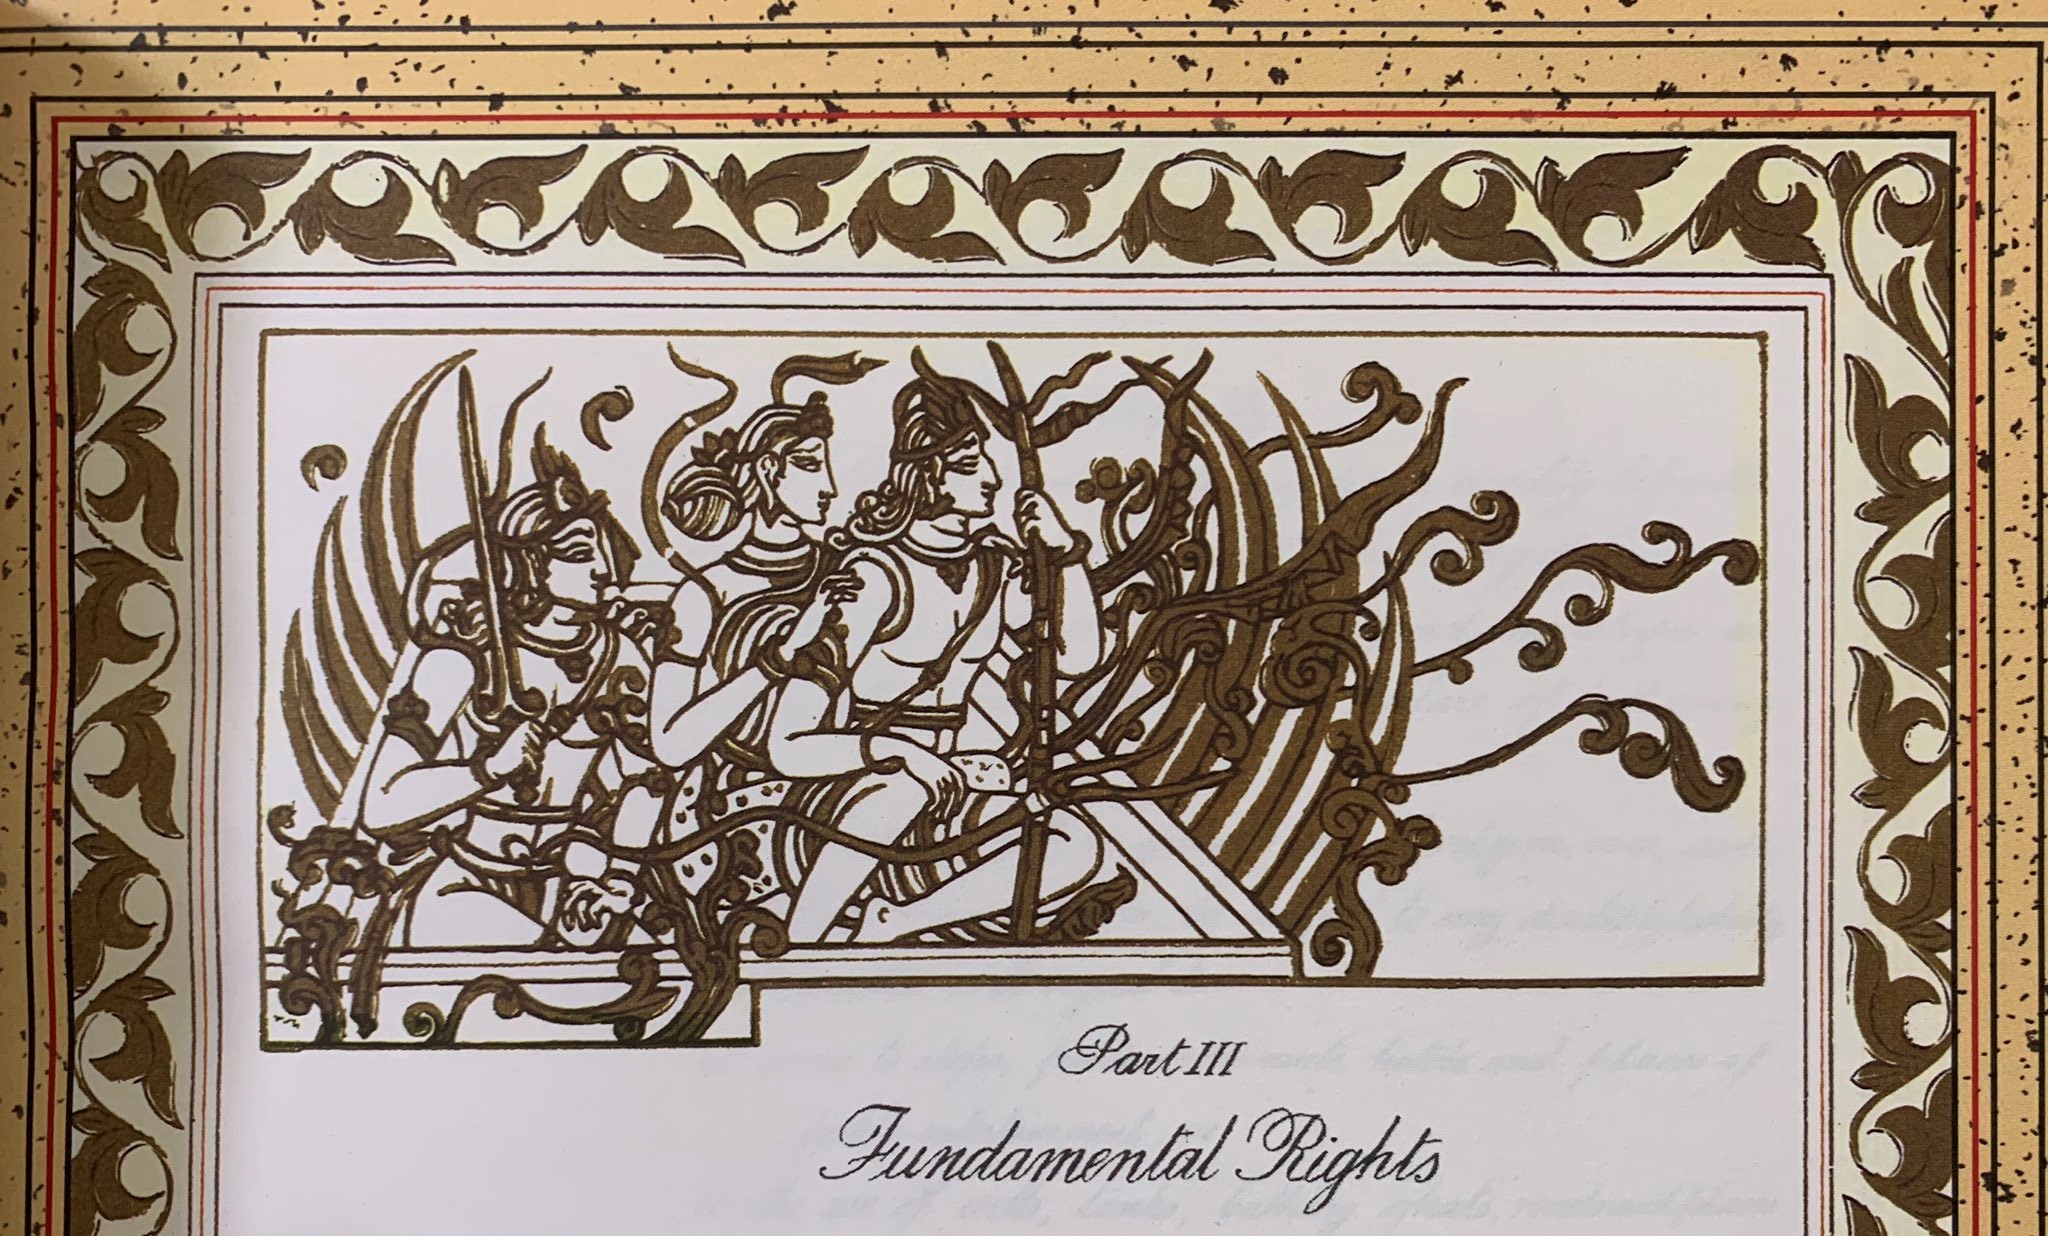 Part III
Fundamental Rights